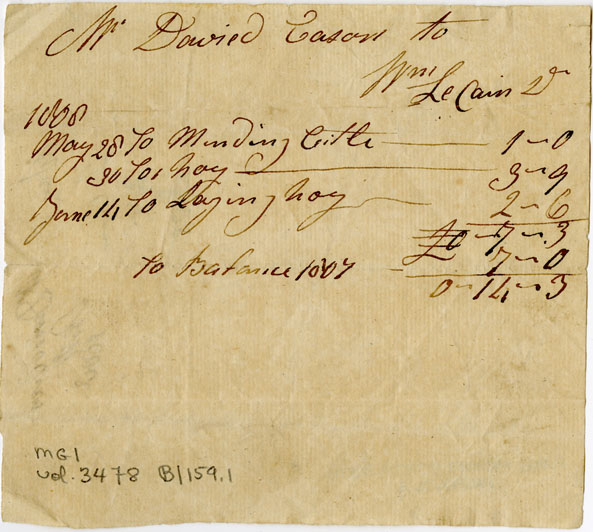 Mr Dawied Eason to
Wm
LeCain Dr
1808
May 28 To Minding Citle — 1 ~ 0
30 To 1 hoy — 3 ~ 9
June 14 To Laying hoy — 2 ~ 6
£0 ~ 7 ~ 3
To Balance 1807 - 7 ~ 0
0 ~ 14 ~ 3
MG1
vol. 3478 B/159.1